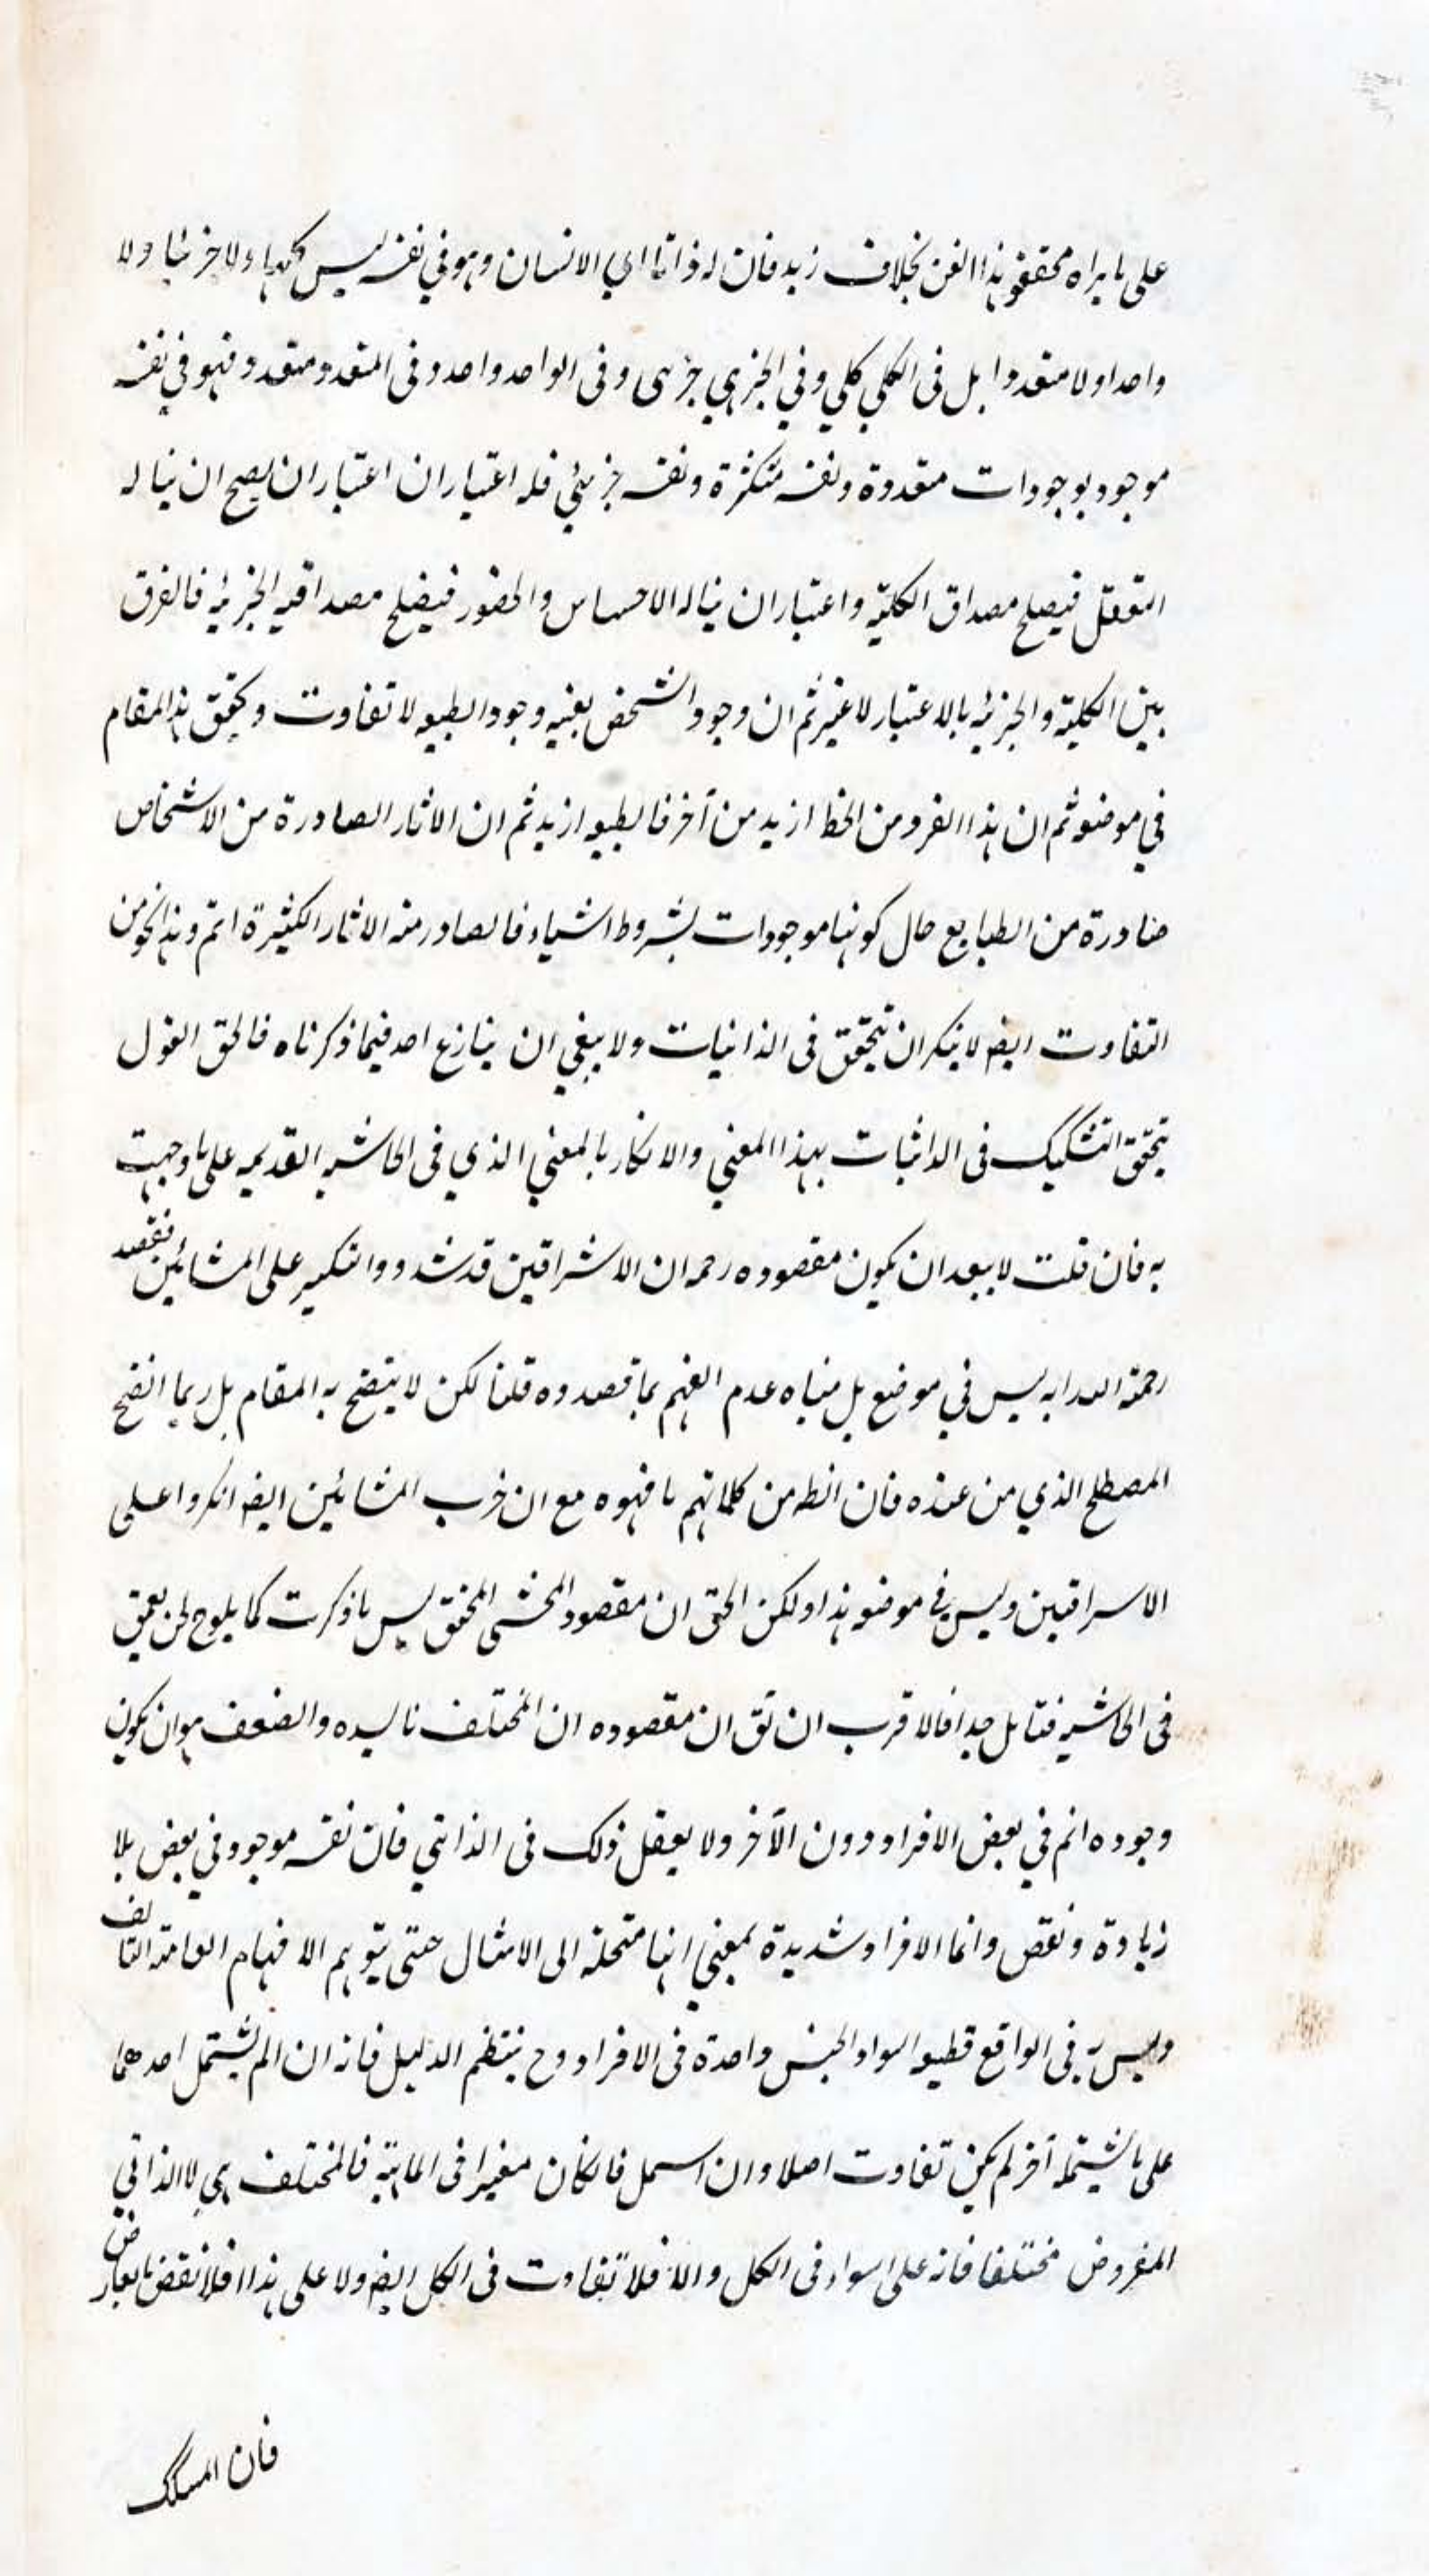 على ما يراه محققو هذا الفن بخلاف زيد فان له ذاتا اي الانسان وهو في نفسه ليس كليا ولا جزئيا ولا
واحدا ولا متعددا بل فى الكلي كلي وفي الجزءي جزءى وفى الواحد واحد وفى المتعدد متعدد فهو في نفسه
موجود بوجودات متعددة ونفسه متكثرة ونفسه جزئي فله اعتباران اعتبار ان يصح ان يناله
التعقل فيصلح مصداق الكلية واعتبار ان يناله الاحساس والحضور فيصلح مصداقيه الجزئيه فالفرق
بين الكلية والجزئيه بالاعتبار لا غير ثم ان وجود الشخص بعينه وجود الطبيعه لا تفاوت وتحقيق هذا المقام
في موضعه ثم ان هذا الفرد من الخط ازيد من آخر فالطبيعه ازيد ثم ان الاثار الصادرة من الاشخاص
صادرة من الطبايع حال كونها موجودات بشروط اشياء فالصادر منه الاثار الكثيرة اتم وهذا النحو من
التفاوت ايضا لا ينكر ان يتحقق فى الذاتيات ولا ينبغي ان ينازع احد فيما ذكرناه فالحق القول
بتحقق التشكيك فى الذاتيات بهذا المعني والانكار بالمعني الذي فى الحاشيه القديمه على ما وجهت
به فان قلت لا يبعد ان يكون مقصوده رحمه ان الاشراقين قد شددوا النكير على المشائين فقصد
رحمة الله انه ليس في موضع بل مبناه عدم الفهم بما قصدوه قلنا لكن لا يتضح به المقام بل ربما اتضح
المصطلح الذي من عنده فان الظ من كلماتهم ما فهموه مع ان حزب المشائين ايضا انكروا على
الاسراقين وليس في موضعه هذا ولكن الحق ان مقصود المحشى المحقق ليس ما ذكرت كما يلوح لمن تعمق
فى الحاشيه فتامل جدا فالاقرب ان تق ان مقصوده ان المختلف بالشده والضعف هو ان يكون
وجوده اتم في بعض الافراد دون الآخر ولا يعقل ذلك فى الذاتي فان نفسه موجود في بعض بلا
زيادة ونقص وانما الافراد شديدة بمعني انها متحلة الى الامثال حتى يتوهم الافهام العامة التالف
وليس به فى الواقع فطبيعه السواد الجنس واحدة فى الافراد وح ينتظم الدليل فانه ان لم يشتمل احدهما
على ما يشتمله آخر لم يكن تفاوت اصلا وان اشتمل فان كان معتبرا فى الماهية فالمختلف هي لا الذاتي
المفروض مختلفا فانه على السواء فى الكل والا فلا تفاوت فى الكل ايضا ولا على هذا فلا نقض بالعارض
فان المسلك